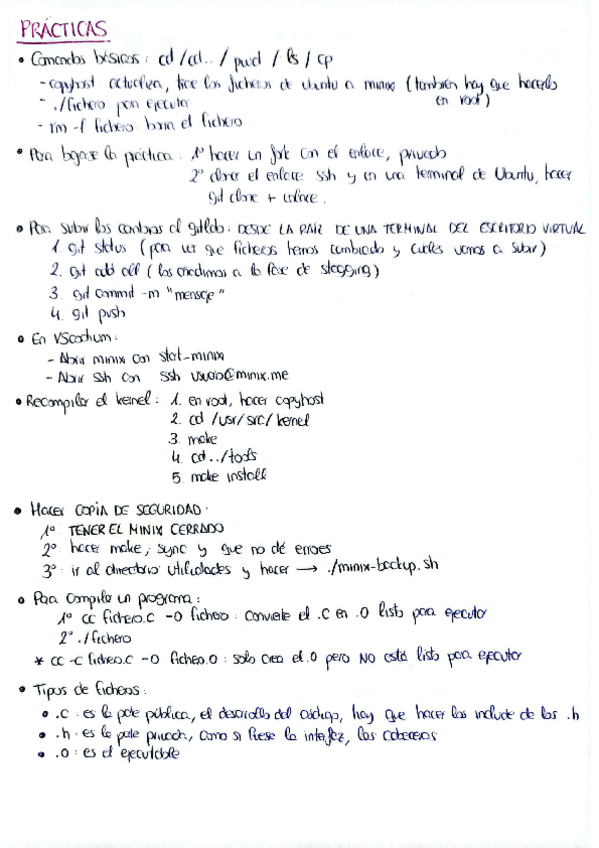 PRÁCTICAS
• Comandos básicos: cd / cd.. / pwd / ls / cp
- copyhost: actualiza, trae los ficheros de Ubuntu a minix (también hay que hacerlo en root)
- ./fichero para ejecutar
- rm -f fichero borra el fichero
• Para bajarse la práctica: 1º hacer un fork con el enlace, privado
2º clonar el enlace ssh y en una terminal de Ubuntu, hacer
git clone + enlace.
• Para subir los cambios al gitlab: DESDE LA RAÍZ DE UNA TERMINAL DEL ESCRITORIO VIRTUAL
1. git status (para ver que ficheros hemos cambiado y cuáles vamos a subir)
2. git add all (los añadimos a la fase de stagging)
3. git commit -m "mensaje"
4. git push
• En VScodium:
- Abrir minix con start-minix
- Abrir ssh con ssh usuario@minix.me
• Recompilar el kernel: 1. en root, hacer copyhost
2. cd /usr/src/kernel
3. make
4. cd ../tools
5. make install
• Hacer COPIA DE SEGURIDAD:
1º TENER EL MINIX CERRADO
2º hacer make; sync y que no dé errores
3º: ir al directorio utilidades y hacer → ./minix-backup.sh
• Para compilar un programa:
1º cc fichero.c -o fichero: convierte el .c en .o listo para ejecutar
2º ./fichero
* cc -c fichero.c -o fichero.o: solo crea el .o pero NO está listo para ejecutar
• Tipos de ficheros:
• .c: es la parte pública, el desarrollo del código, hay que hacer los include de los .h
• .h: es la parte privada, como si fuese la interfaz, las cabeceras
• .o: es el ejecutable